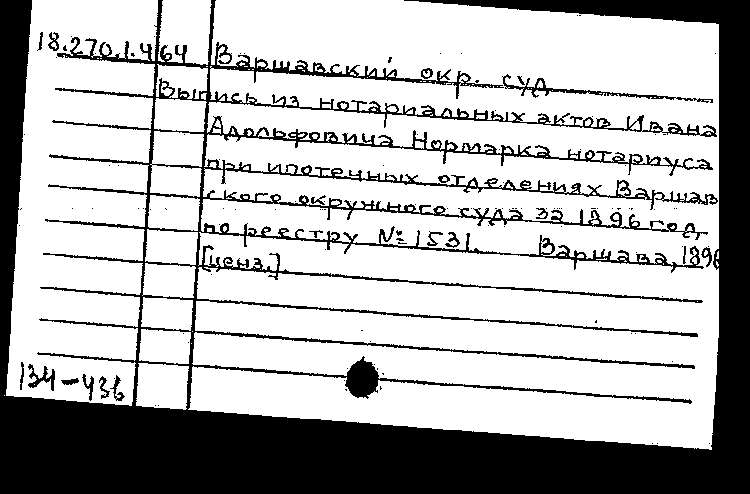 18.270.1.464 Варшавский окр. суд
Выпись из нотариальных актов Ивана
Адольфовича Нормарка нотариуса
при ипотечных отделениях Варшав
ского окружного суда за 1896 год,
по реестру № 1531. Варшава, 1896
[ценз.].
134-436